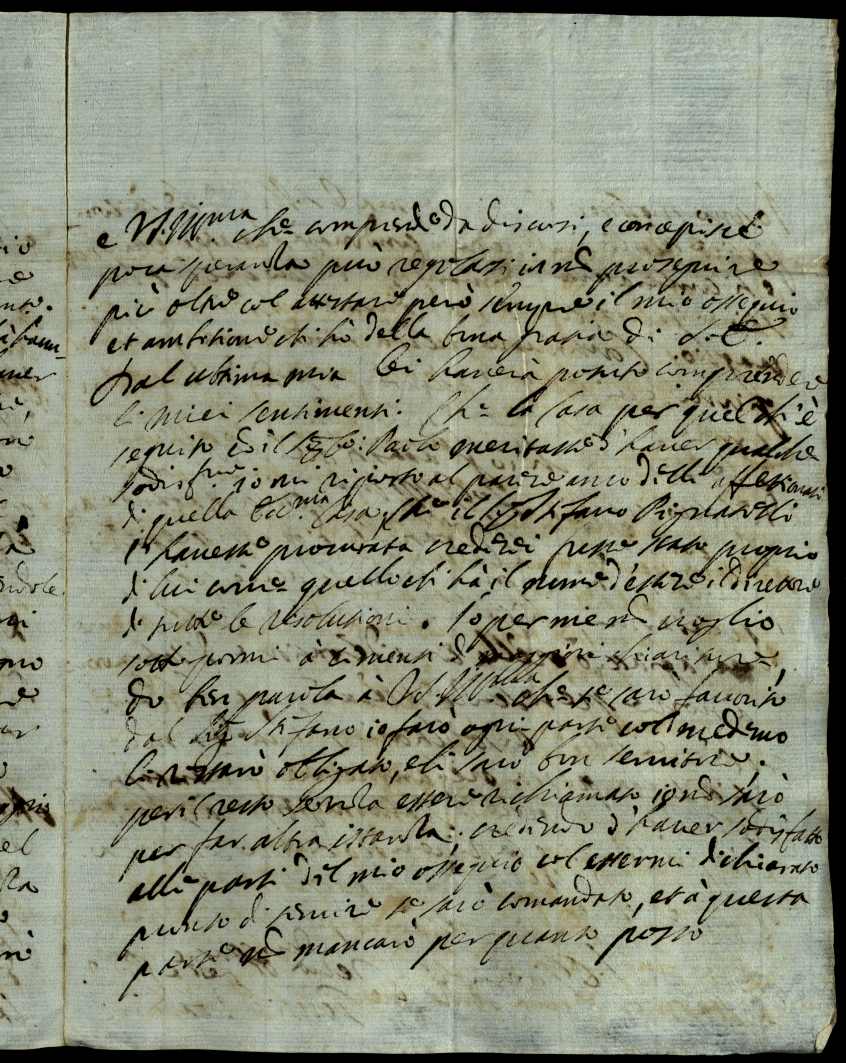 e V.S. Ill.ma che comprende da discorsi, e concepisce
poca speranza può regolarsi in non proseguire
più oltre col attestare però sempre il mio ossequio
et ambitione ch'hò della bona grazia di S. E.
Dal ultima mia lei haverà potuto comprendere
li miei sentimenti. Che la Casa per quel ch'è
seguito il Paolo meritasse d'haver qualche
sodisf.ne io mi riporto al parere anco delli affetionati
di quella Ecc.ma Casa, che il Sig. Stefano Pignatelli
l'havesse procurata crederei fusse stato proprio
di lui come quello ch'hà il nome d'essere il direttore
di tutte le resolutioni. Io per me non voglio
sottopormi à cimenti di maggiori
do ben parola à V.S. Ill.ma che se sarò favorito
dal Sig. Stefano io farò ogni parte col medemo
li restarò obligato, e li sarò bon servitore.
per il resto senza essere richiamato io non sarò
per far altra istanza, credendo d'haver sodisfatto
alle parti del mio ossequio col essermi dichiarato
pronto di servire se sarò comandato, et à questa
parte non mancarò per quanto posso